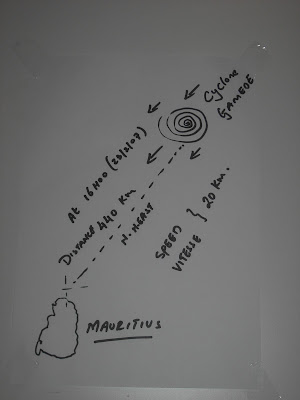 Cyclone
GAMEDE
At 16H00
DISTANCE 440 KM
N.NEAST
SPEED
VITESSE } 20 KM.
MAURITIUS